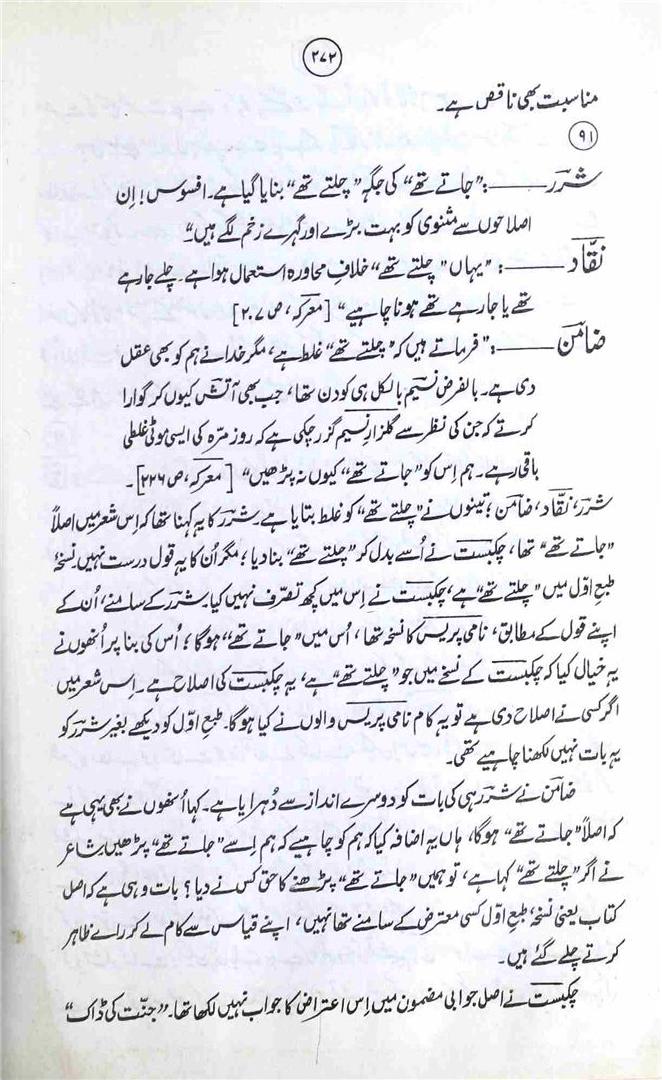 ۲۷۲
مناسبت بھی ناقص ہے۔
۹۱
شرر ـــــــ : ”جاتے تھے“ کی جگہ ”چلتے تھے“ بنایا گیا ہے۔ افسوس! اِن
اصلاحوں سے مثنوی کو بہت بڑے اور گہرے زخم لگے ہیں“۔
نقّاد ـــــــ : ”یہاں ”چلتے تھے“ خلافِ محاورہ استعمال ہوا ہے۔ چلے جا رہے
تھے یا جا رہے تھے ہونا چاہیے“ [معرکہ، ص ۲۰۷]
ضامن ـــــــ : ”فرماتے ہیں کہ ”چلتے تھے“ غلط ہے، مگر خدا نے ہم کو بھی عقل
دی ہے۔ بالفرض نسیم بالکل ہی کودن تھا، جب بھی آتش کیوں کر گوارا
کرتے کہ جن کی نظر سے گلزارِ نسیم گزر چکی ہے کہ روز مرّہ کی ایسی موٹی غلطی
باقی رہے۔ ہم اِس کو ”جاتے تھے“ کیوں نہ پڑھیں“ [معرکہ، ص ۲۲۶]۔
شرر، نقّاد، ضامن؛ تینوں نے ”چلتے تھے“ کو غلط بتایا ہے۔ شرر کا یہ کہنا تھا کہ اِس شعر میں اصلاً
”جاتے تھے“ تھا، چکبست نے اُسے بدل کر ”چلتے تھے“ بنا دیا؛ مگر اُن کا یہ قول درست نہیں۔ نسخۂ
طبعِ اوّل میں ”چلتے تھے“ ہے، چکبست نے اِس میں کچھ تصرّف نہیں کیا۔ شرر کے سامنے، اُن کے
اپنے قول کے مطابق، نامی پریس کا نسخہ تھا، اُس میں ”جاتے تھے“ ہوگا؛ اُس کی بنا پر اُنھوں نے
یہ خیال کیا کہ چکبست کے نسخے میں جو ”چلتے تھے“ ہے، یہ چکبست کی اصلاح ہے۔ اِس شعر میں
اگر کسی نے اصلاح دی ہے تو یہ کام نامی پریس والوں نے کیا ہوگا۔ طبعِ اوّل کو دیکھے بغیر شرر کو
یہ بات نہیں لکھنا چاہیے تھی۔
ضامن نے شرر ہی کی بات کو دوسرے انداز سے دُہرایا ہے۔ کہا اُنھوں نے بھی یہی ہے
کہ اصلاً ”جاتے تھے“ ہوگا، ہاں یہ اضافہ کیا کہ ہم کو چاہیے کہ ہم اِسے ”جاتے تھے“ پڑھیں۔ شاعر
نے اگر ”چلتے تھے“ کہا ہے، تو ہمیں ”جاتے تھے“ پڑھنے کا حق کس نے دیا؟ بات وہی ہے کہ اصل
کتاب یعنی نسخۂ طبعِ اوّل کسی معترض کے سامنے تھا نہیں، اپنے قیاس سے کام لے کر رائے ظاہر
کرتے چلے گئے ہیں۔
چکبست نے اصل جوابی مضمون میں اِس اعتراض کا جواب نہیں لکھا تھا۔ ”جنّت کی ڈاک“